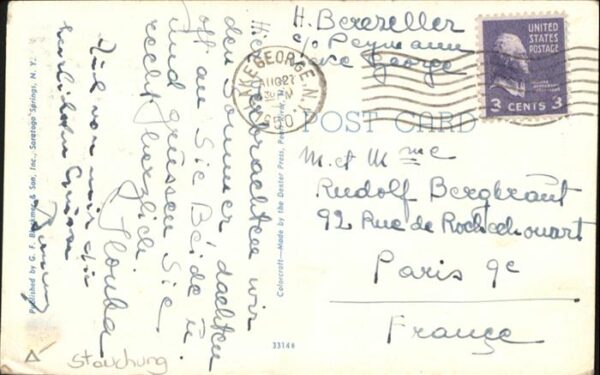 H. Berezeller
c/o Peymann
Lake George
LAKE GEORGE, N.Y.
AUG 27
1950
UNITED
STATES
POSTAGE
3 CENTS 3
POST CARD
M. et Mme
Rudolf Bergbraut
92 Rue de Rochechouart
Paris 9e
France
Hier verbrachten wir
den Sommer, dachten
oft an Sie Beide u.
und grüssen Sie
recht herzlich
Auch von mir die
herzlichsten Grüsse
Published by G. F. & Son, Inc., Saratoga Springs, N. Y.
Colorcraft—Made by the Dexter Press, Pearl River, N. Y.
33146
Stauchung